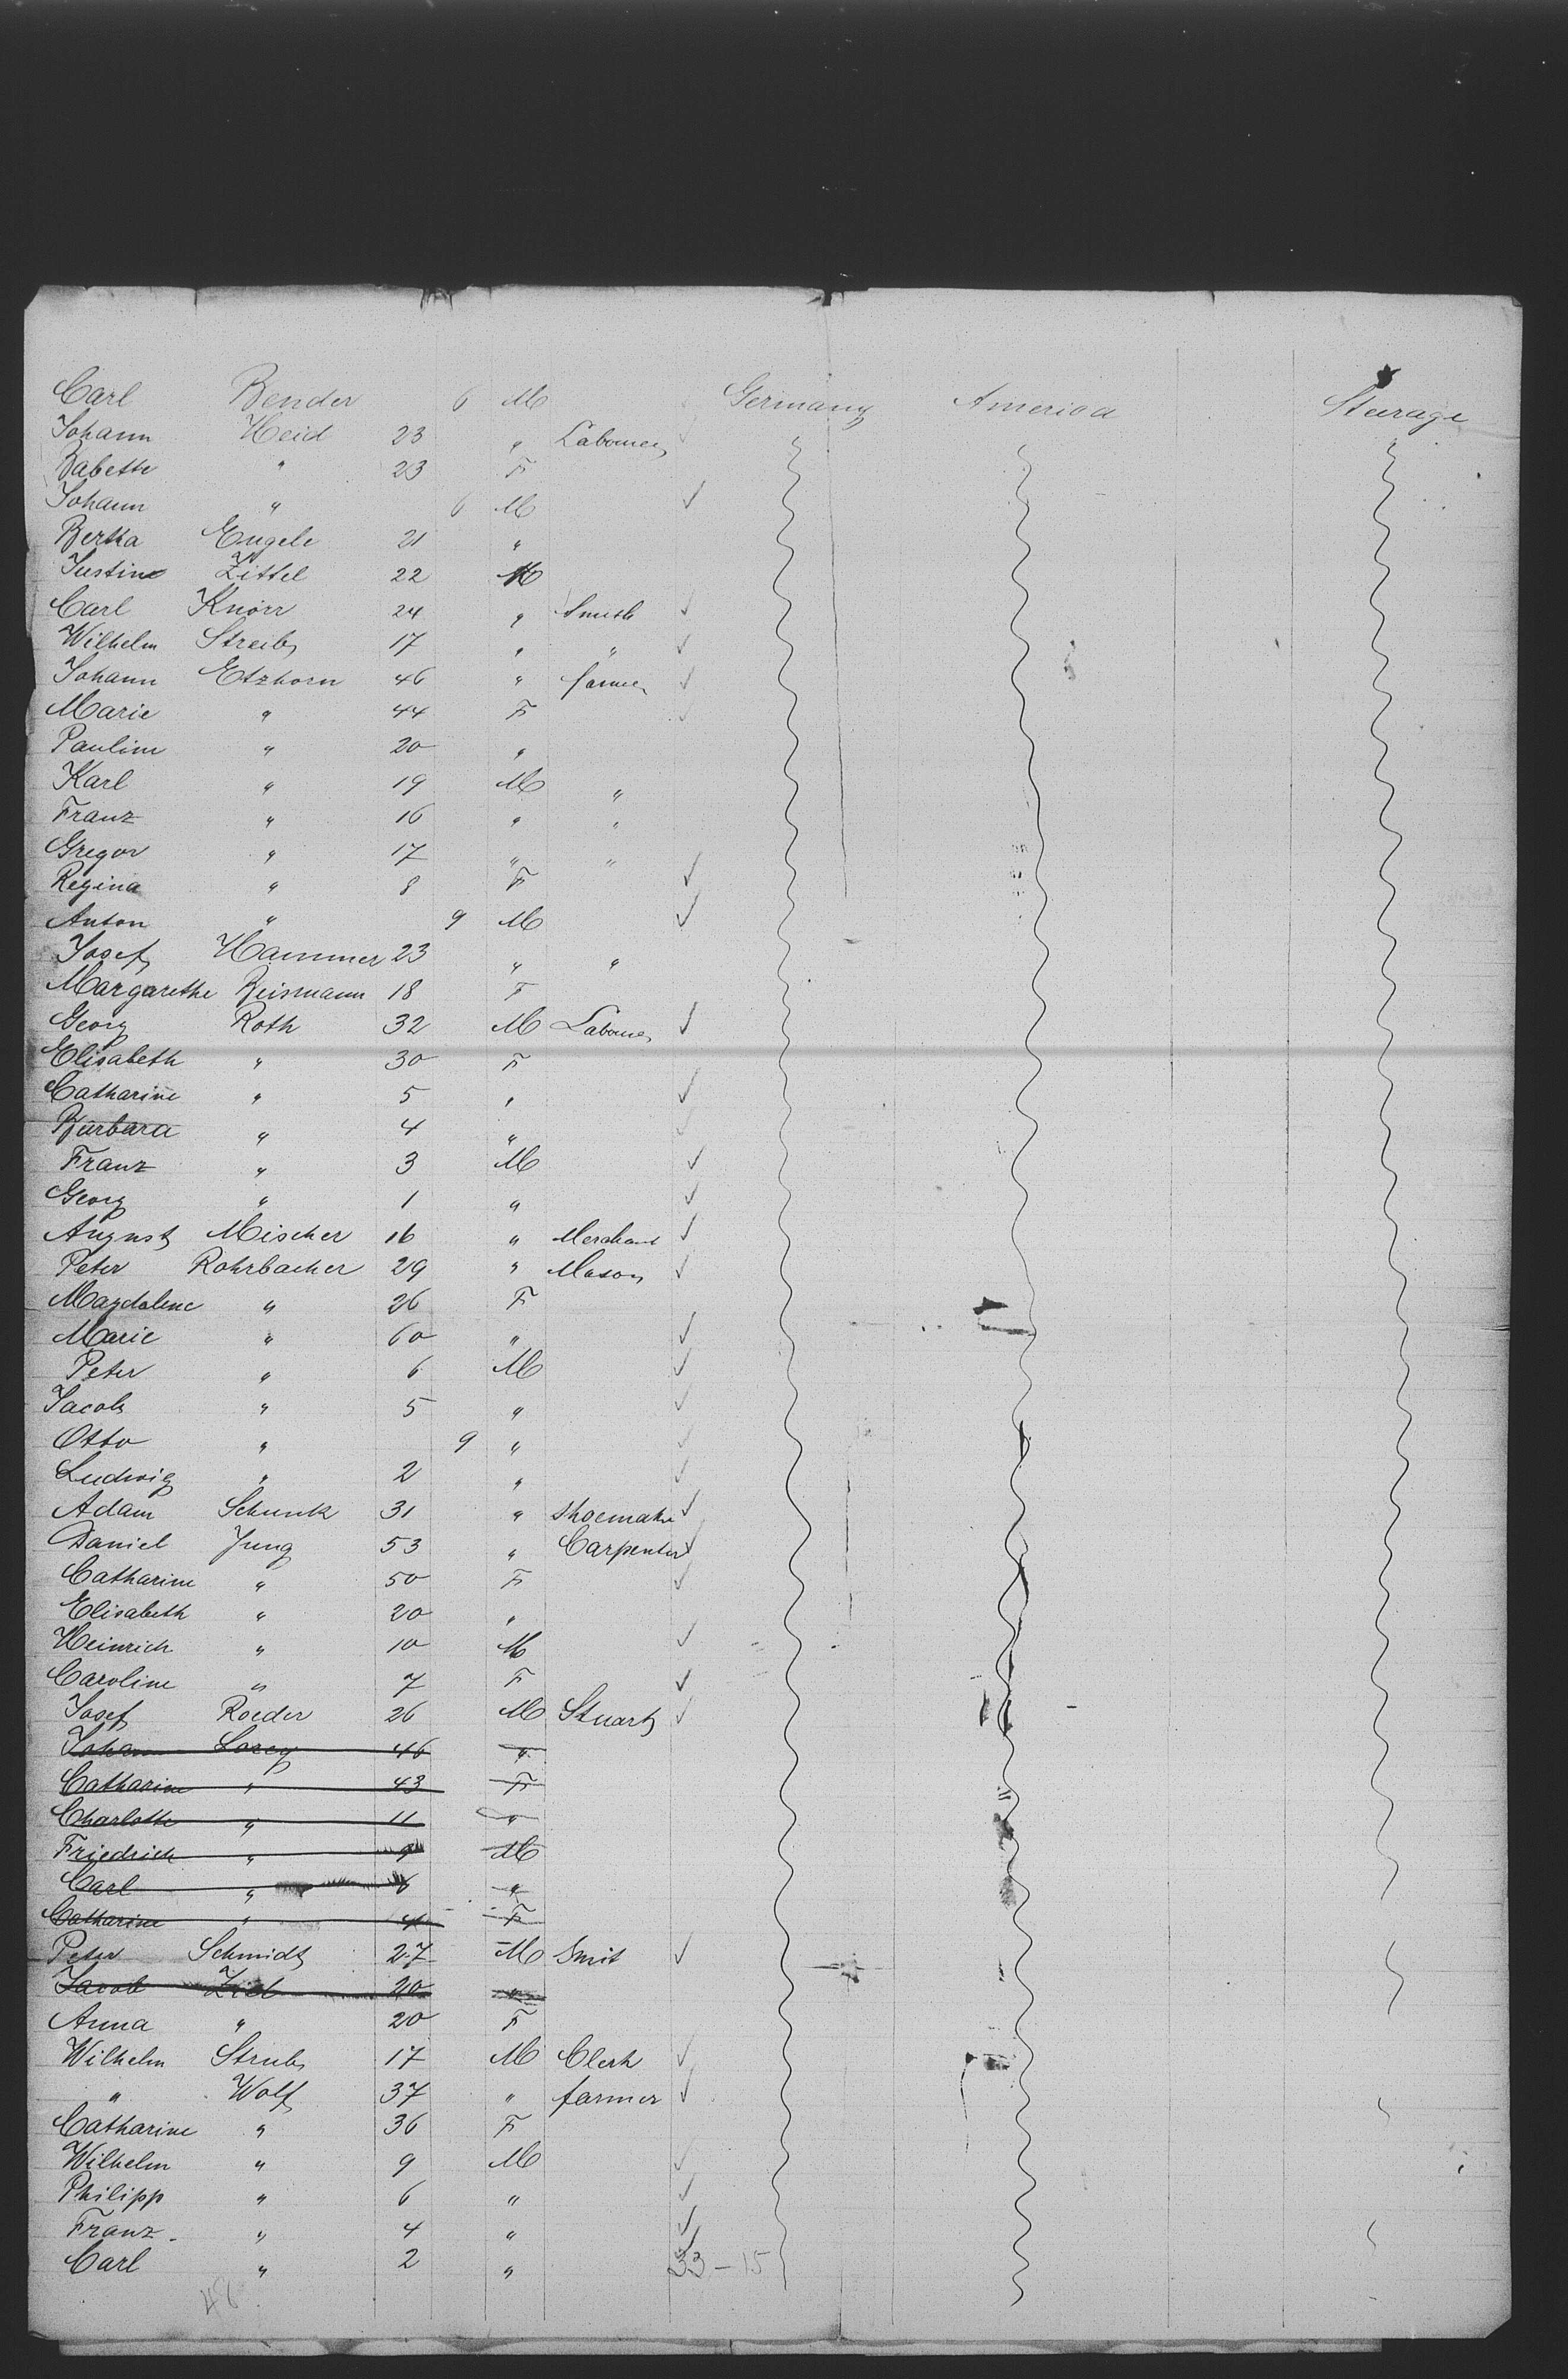 Carl Bender 6 M Germany America Steerage
Johann Heid 23 " Labourer
Babette " 23 F
Johann " 6 M
Bertha Engele 21 "
Justine Zittel 22 M
Carl Knörr 24 " Smith
Wilhelm Streib 17 " "
Johann Etzhorn 46 " farmer
Marie " 44 F
Pauline " 20 "
Karl " 19 M "
Franz " 16 " "
Gregor " 17 " "
Regina " 8 F
Anton " 9 M
Josef Hammer 23 " "
Margarethe Reismann 18 F
Georg Roth 32 M Labourer
Elisabeth " 30 F
Catharine " 5 "
Barbara " 4 "
Franz " 3 M
Georg " 1 "
August Mischer 16 " Merchant
Peter Rohrbacher 29 " Mason
Magdalene " 26 F
Marie " 60 "
Peter " 6 M
Jacob " 5 "
Otto " 9 "
Ludwig " 2 "
Adam Schunk 31 " Shoemaker
Daniel Jung 53 " Carpenter
Catharine " 50 F
Elisabeth " 20 "
Heinrich " 10 M
Caroline " 7 F
Josef Roeder 26 M Stuart
Johann Lorey 46 "
Catharine " 43 F
Charlotte " 11 "
Friedrich " 9 M
Carl " 6 "
Catharine " 4 F
Peter Schmidt 27 M Smit
Jacob Ziel 20 "
Anna " 20 F
Wilhelm Strub 17 M Clerk
" Wolf 37 " farmer
Catharine " 36 F
Wilhelm " 9 M
Philipp " 6 "
Franz " 4 "
Carl " 2 " 33-15
48